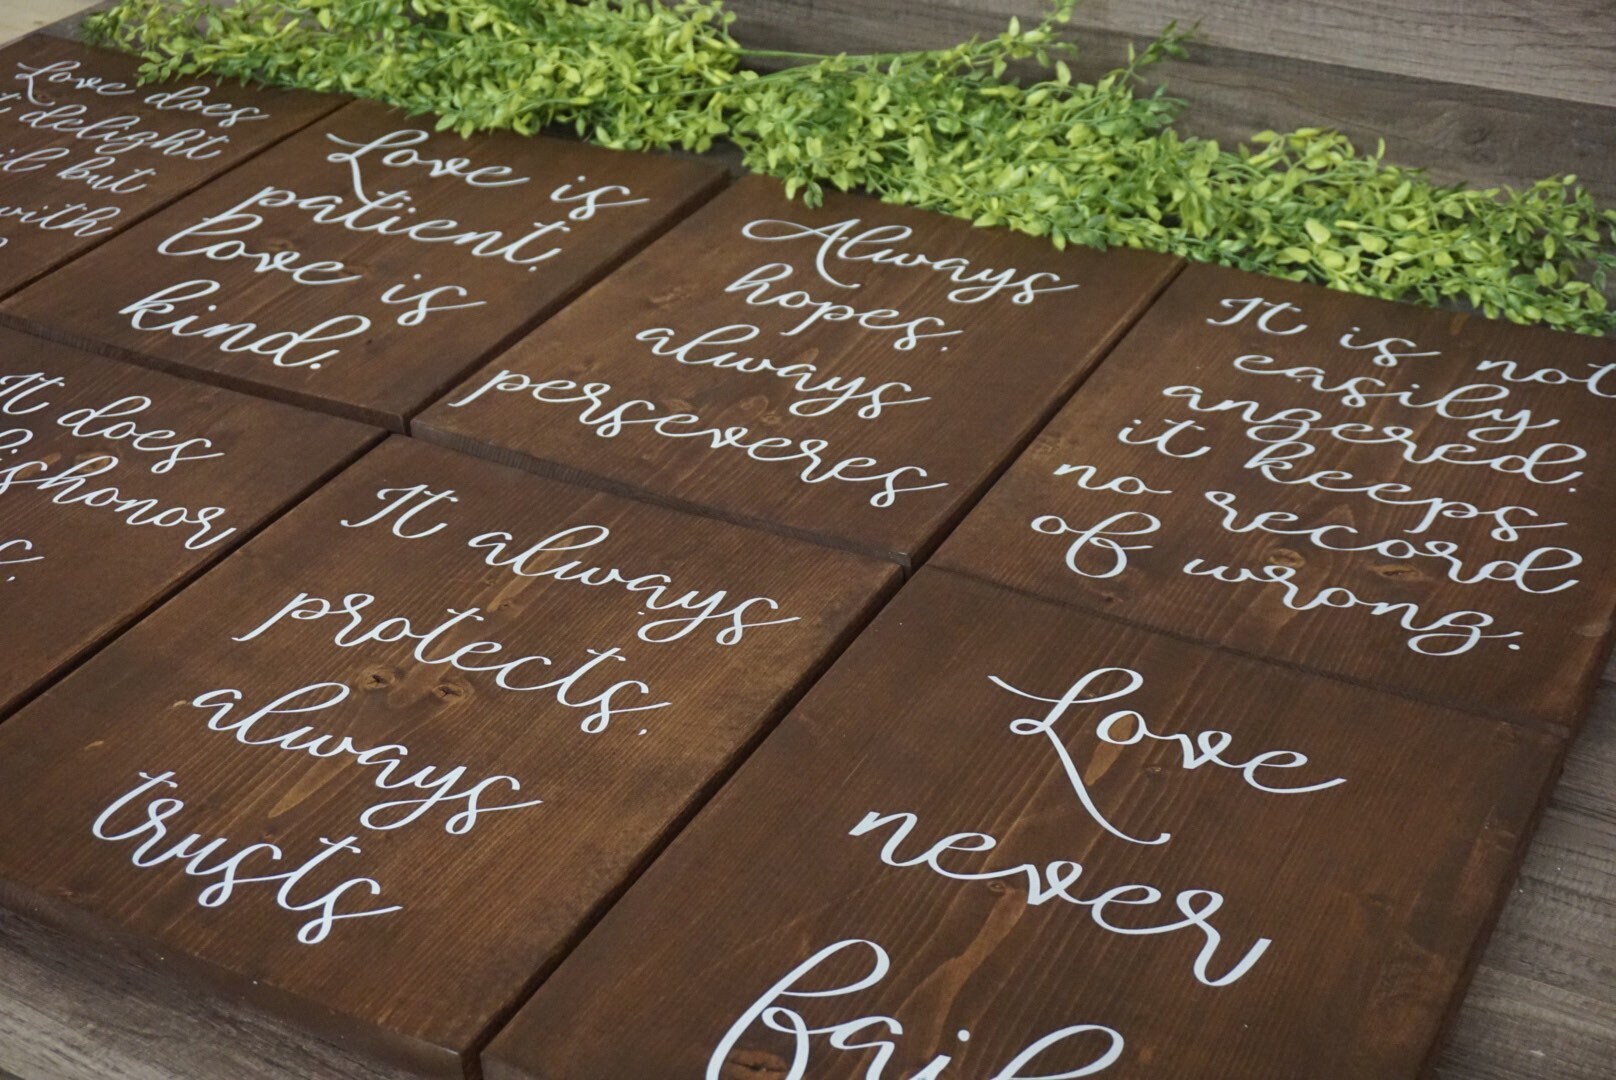 Love does
delight
but
with
Love is
patient,
love is
kind.
Always
hopes,
always
perseveres
It is not
easily
angered,
it keeps
no record
of wrong.
It does
dishonor
It always
protects,
always
trusts
Love
never
fail